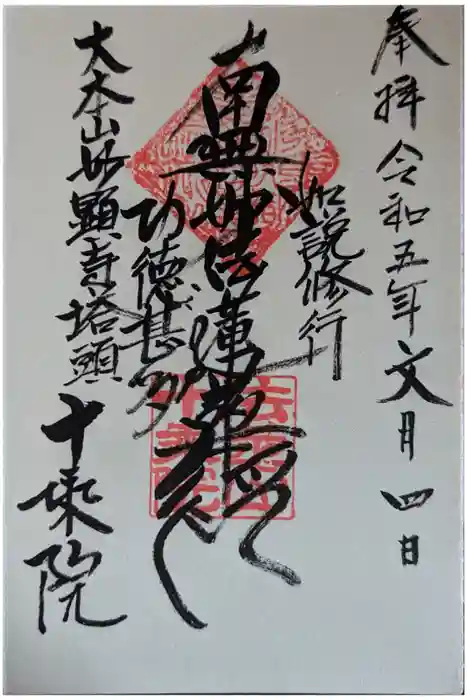 奉拝 令和五年文月四日
如説修行
南無妙法蓮華経
功徳甚多
大本山妙顯寺塔頭 十乘院